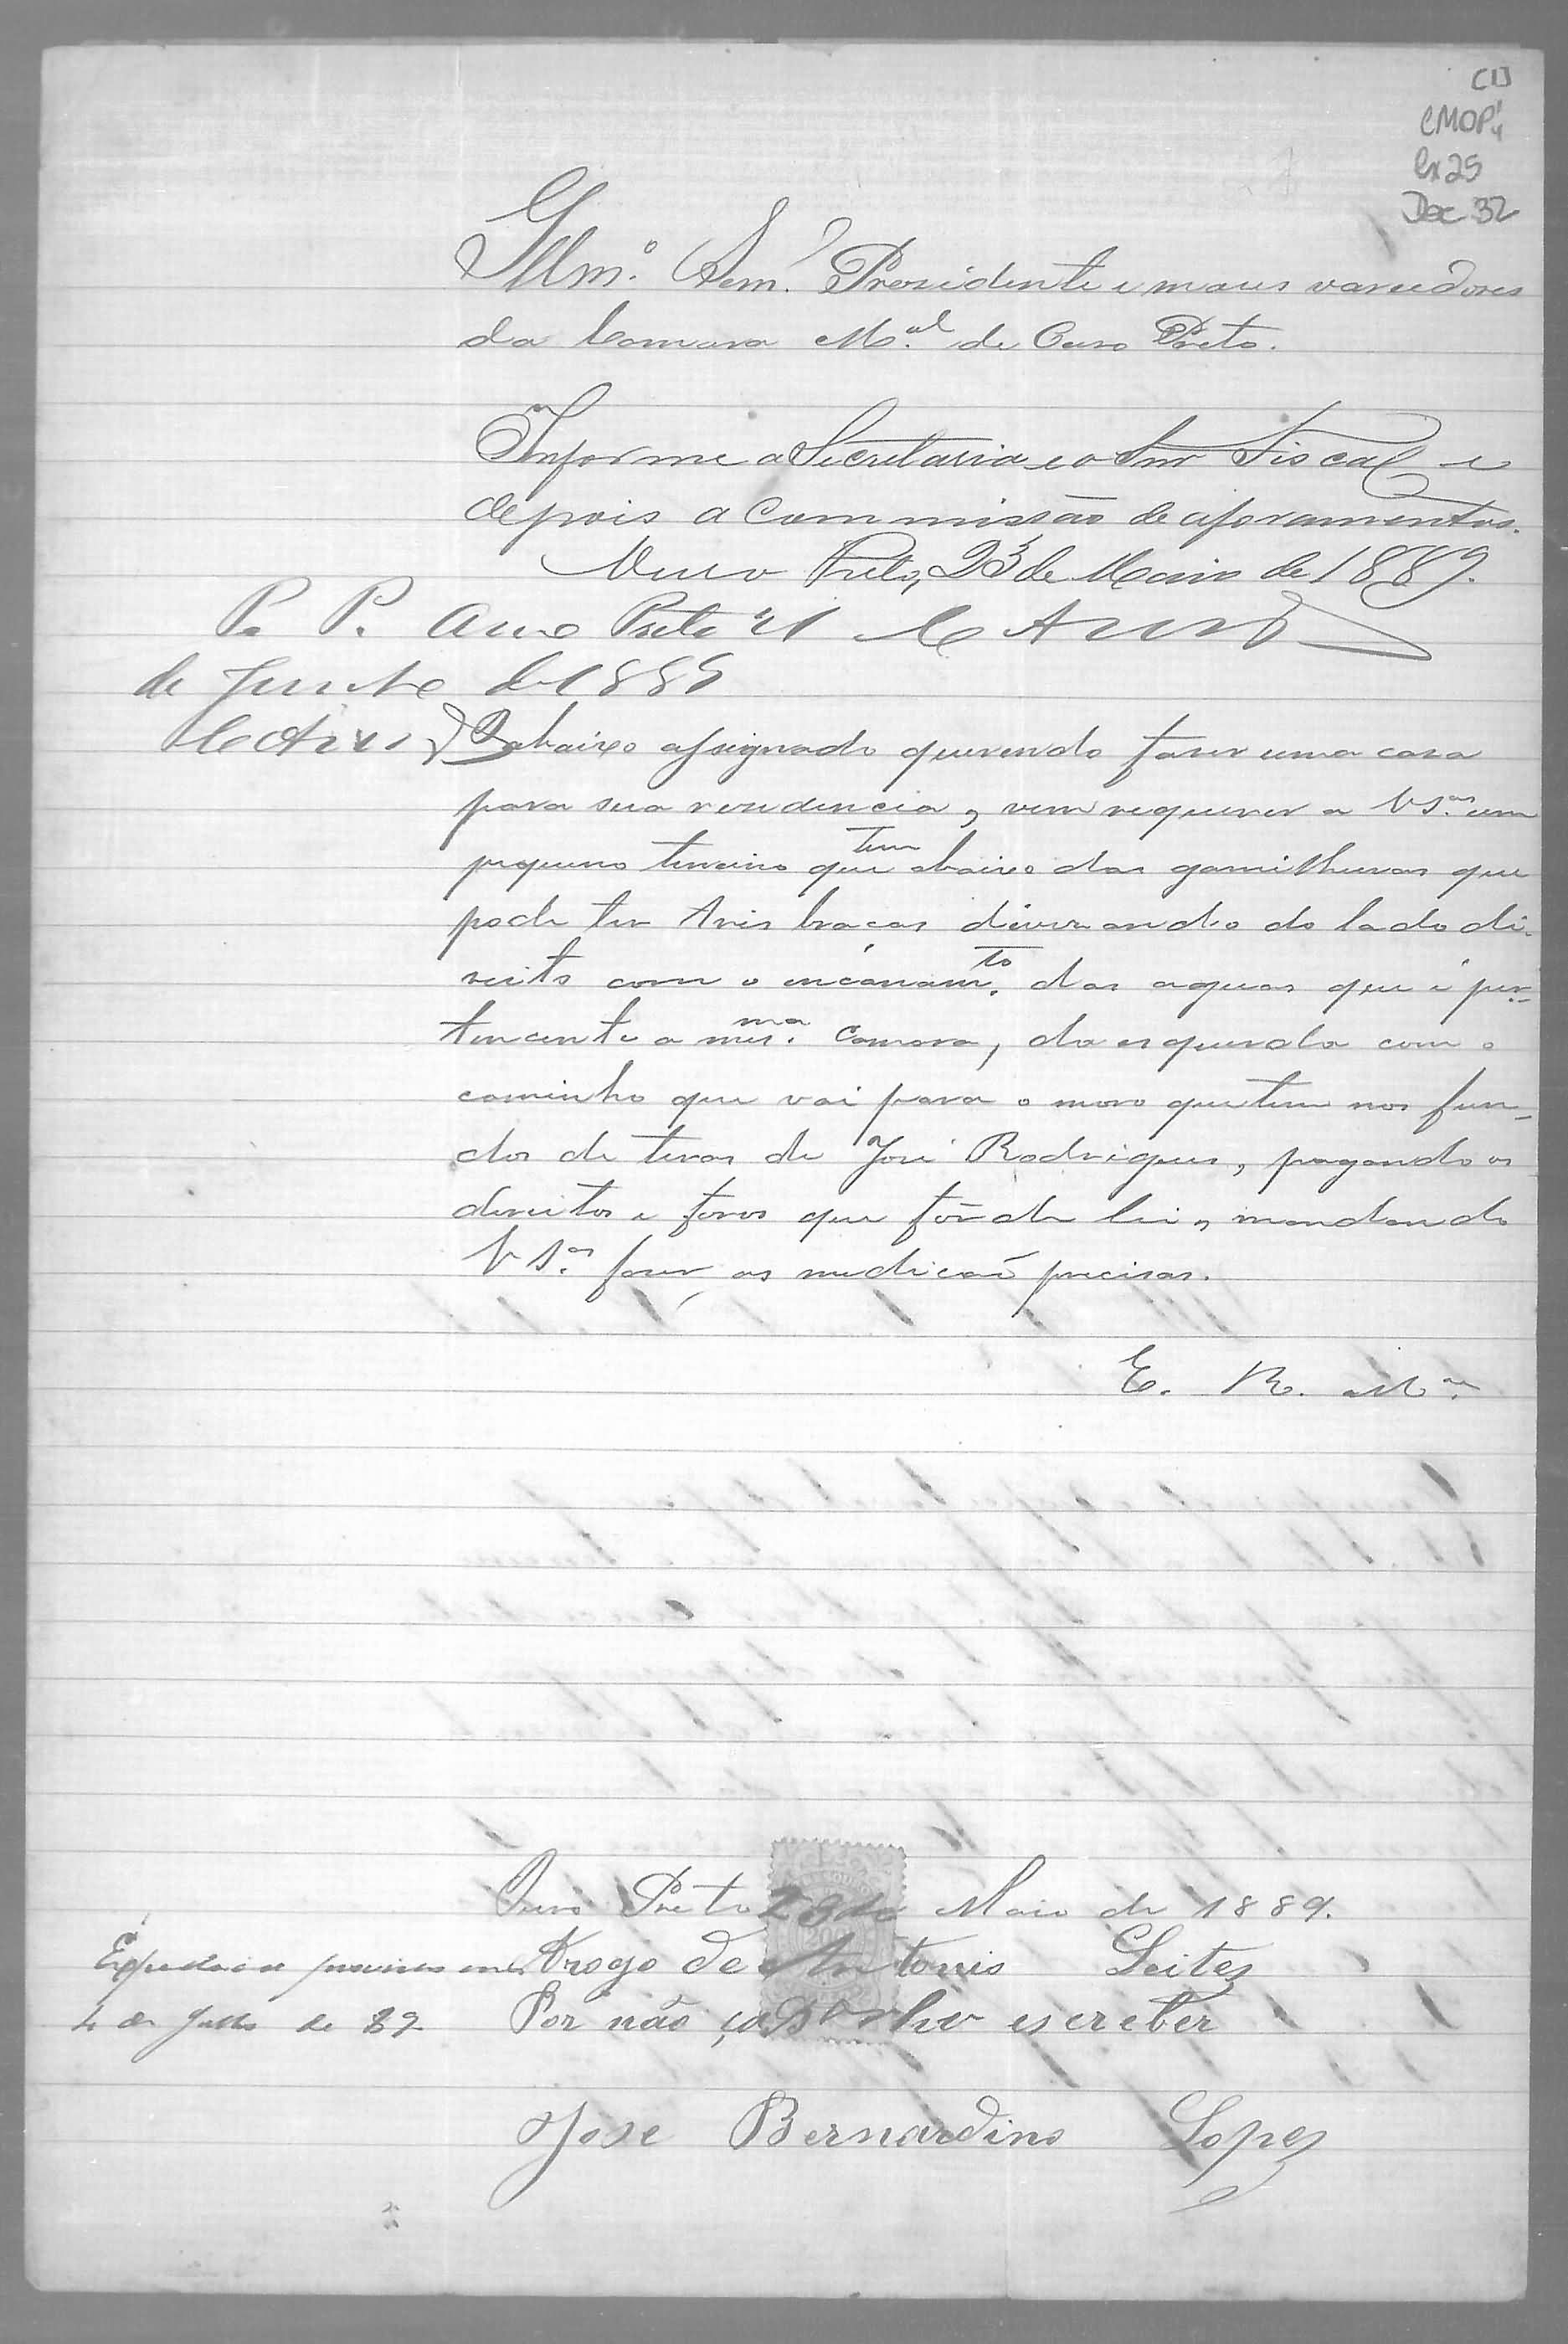 CMOP
Cx 25
Doc 32
Illmo. Exmo. Prezidente e mais vareadores
da Camara Mal. de Ouro Preto.
Informe a Secretaria e o Snr Fiscal e
depois a Commissão de aforamentos.
Ouro Preto, 23 de Maio de 1889.
P. P. Ouro Preto 21
de Junho de 1889
O abaixo assignado querendo fazer uma casa
para sua rezidencia, vem requerer a VSas. um
pequeno terreno que tem abaixo das gamilheiras que
pode ter tres braças divizando do lado di-
reito com o encanamto. das aguas que é per-
tencente a mesma. Camara, da esquerda com o
caminho que vai para o moro que tem nos fun-
dos de teras de José Rodrigues, pagando os
direitos e foros que fôr de lei, mandando
VSas. fazer as mediçaõ precisas.
E. R. Mce.
Ouro Preto 23 de Maio de 1889.
Arogo de Antonio Leites
Por não escreber
Jose Bernardino Lopes
4 de Julho de 89